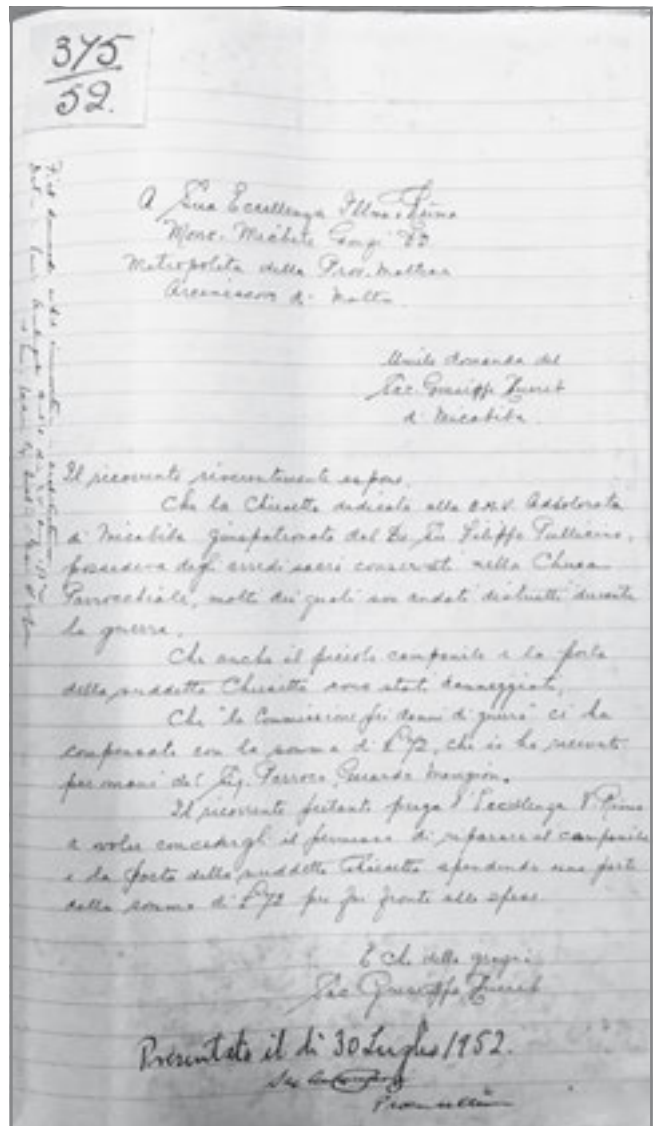 375
52.
A Sua Eccellenza Illma e Rma
Mons. Michele Gonzi
Metropolita della Prov. Maltese
Arcivescovo di Malta.
Umile domanda del
Sac. Giuseppe Zurrieb
di Micabiba.
Il ricorrente riverentemente espone,
Che la Chiesetta dedicata alla B.M.V. Addolorata
di Micabiba giuspatronato del Filippo Pullicino,
possedeva degli arredi sacri conservati nella Chiesa
Parrocchiale, molti dei quali son andati distrutti durante
la guerra.
Che anche il piccolo campanile e la porta
della suddetta Chiesetta sono stati danneggiati,
Che "la Commissione pei danni di guerra" ci ha
compensato con la somma di £72, che io ho ricevuto
per mani del Sig. Parroco, Mangion.
Il ricorrente pertanto prega l'Eccellenza V. Rma
a voler concedergli il permesso di riparare il campanile
e la porta della suddetta Chiesetta spendendo una parte
della somma di £72 per far fronte alle spese.
E che della grazia
Sac. Giuseppe
Presentata il di 30 Luglio 1952.